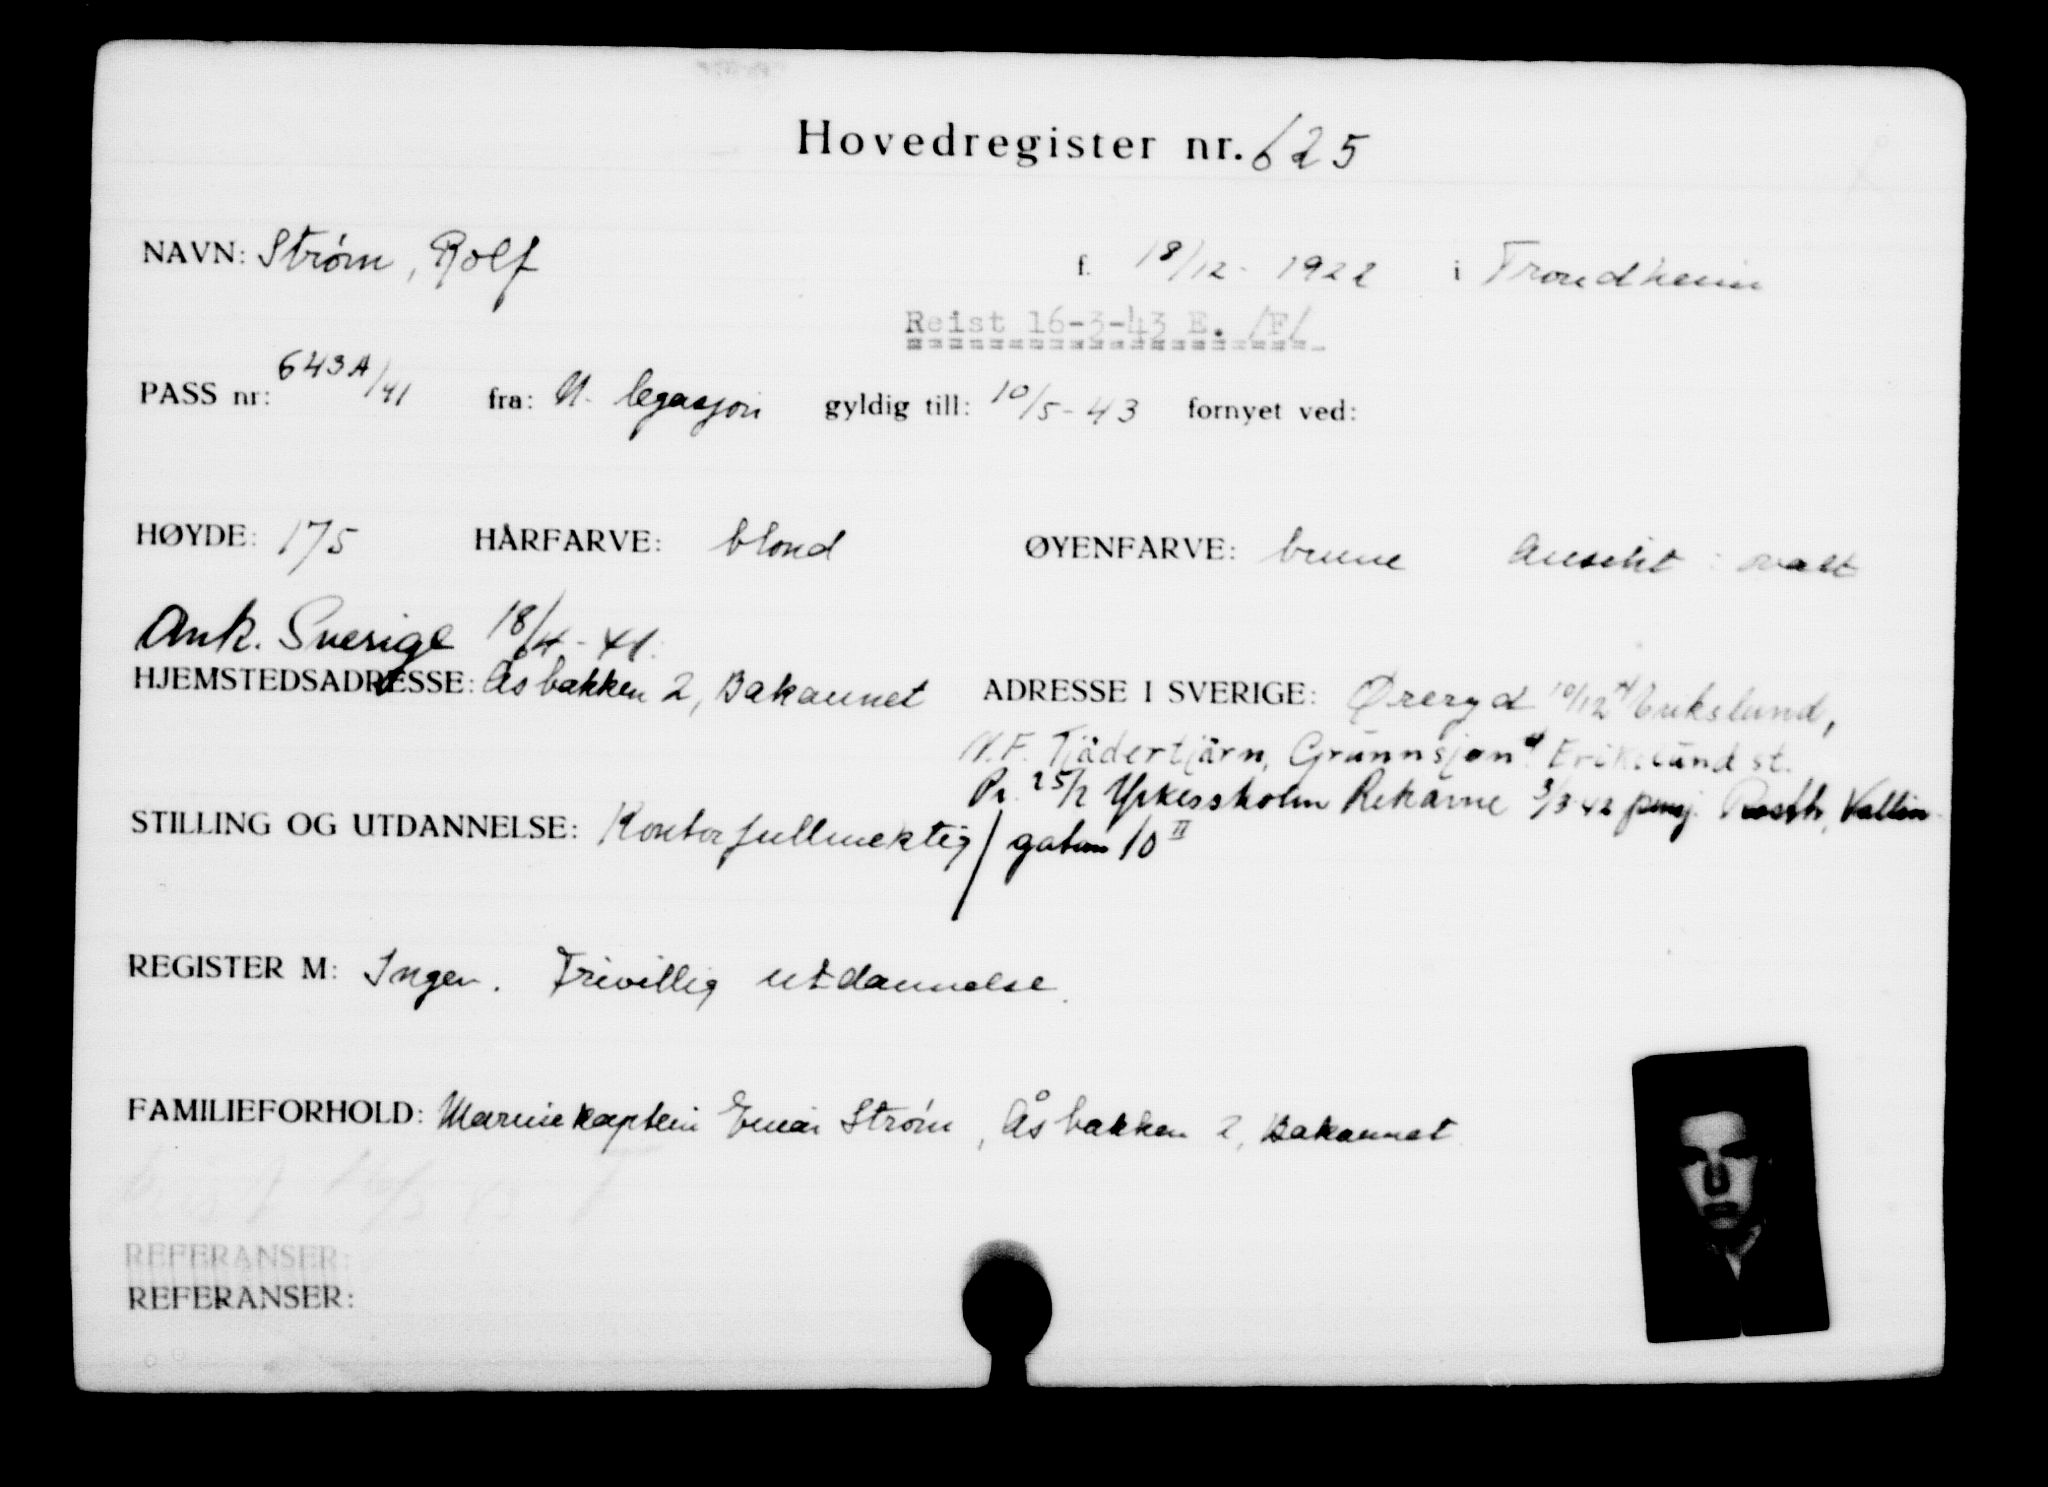 Hovedregister nr. 625
NAVN: Strøm, Rolf f. 18/12 - 1922 i Trondheim
Reist 16-3-43 E. /F/
PASS nr: 643A/41 fra: N. legasjon gyldig till: 10/5-43 fornyet ved:
HØYDE: 175 HÅRFARVE: blond ØYENFARVE: brune Ansikt: ovalt
Ank. Sverige 18/4-41.
HJEMSTEDSADRESSE: Åsbakken 2, Bakaunet ADRESSE I SVERIGE: Øreryd 10/12 Erikslund,
N.F. Tjädertjärn, Grunnsjön Erikslund st.
Pr. 25/2 Ykersholm Rekarne 3/3 42 pensj. Vallin-
STILLING OG UTDANNELSE: Kontorfullmektig / gatan 10 II
REGISTER M: Ingen. Frivillig utdannelse.
FAMILIEFORHOLD: Marinekaptein Einar Strøm, Åsbakken 2, Bakaunet
Reist 16/3 43 F
REFERANSER:
REFERANSER: